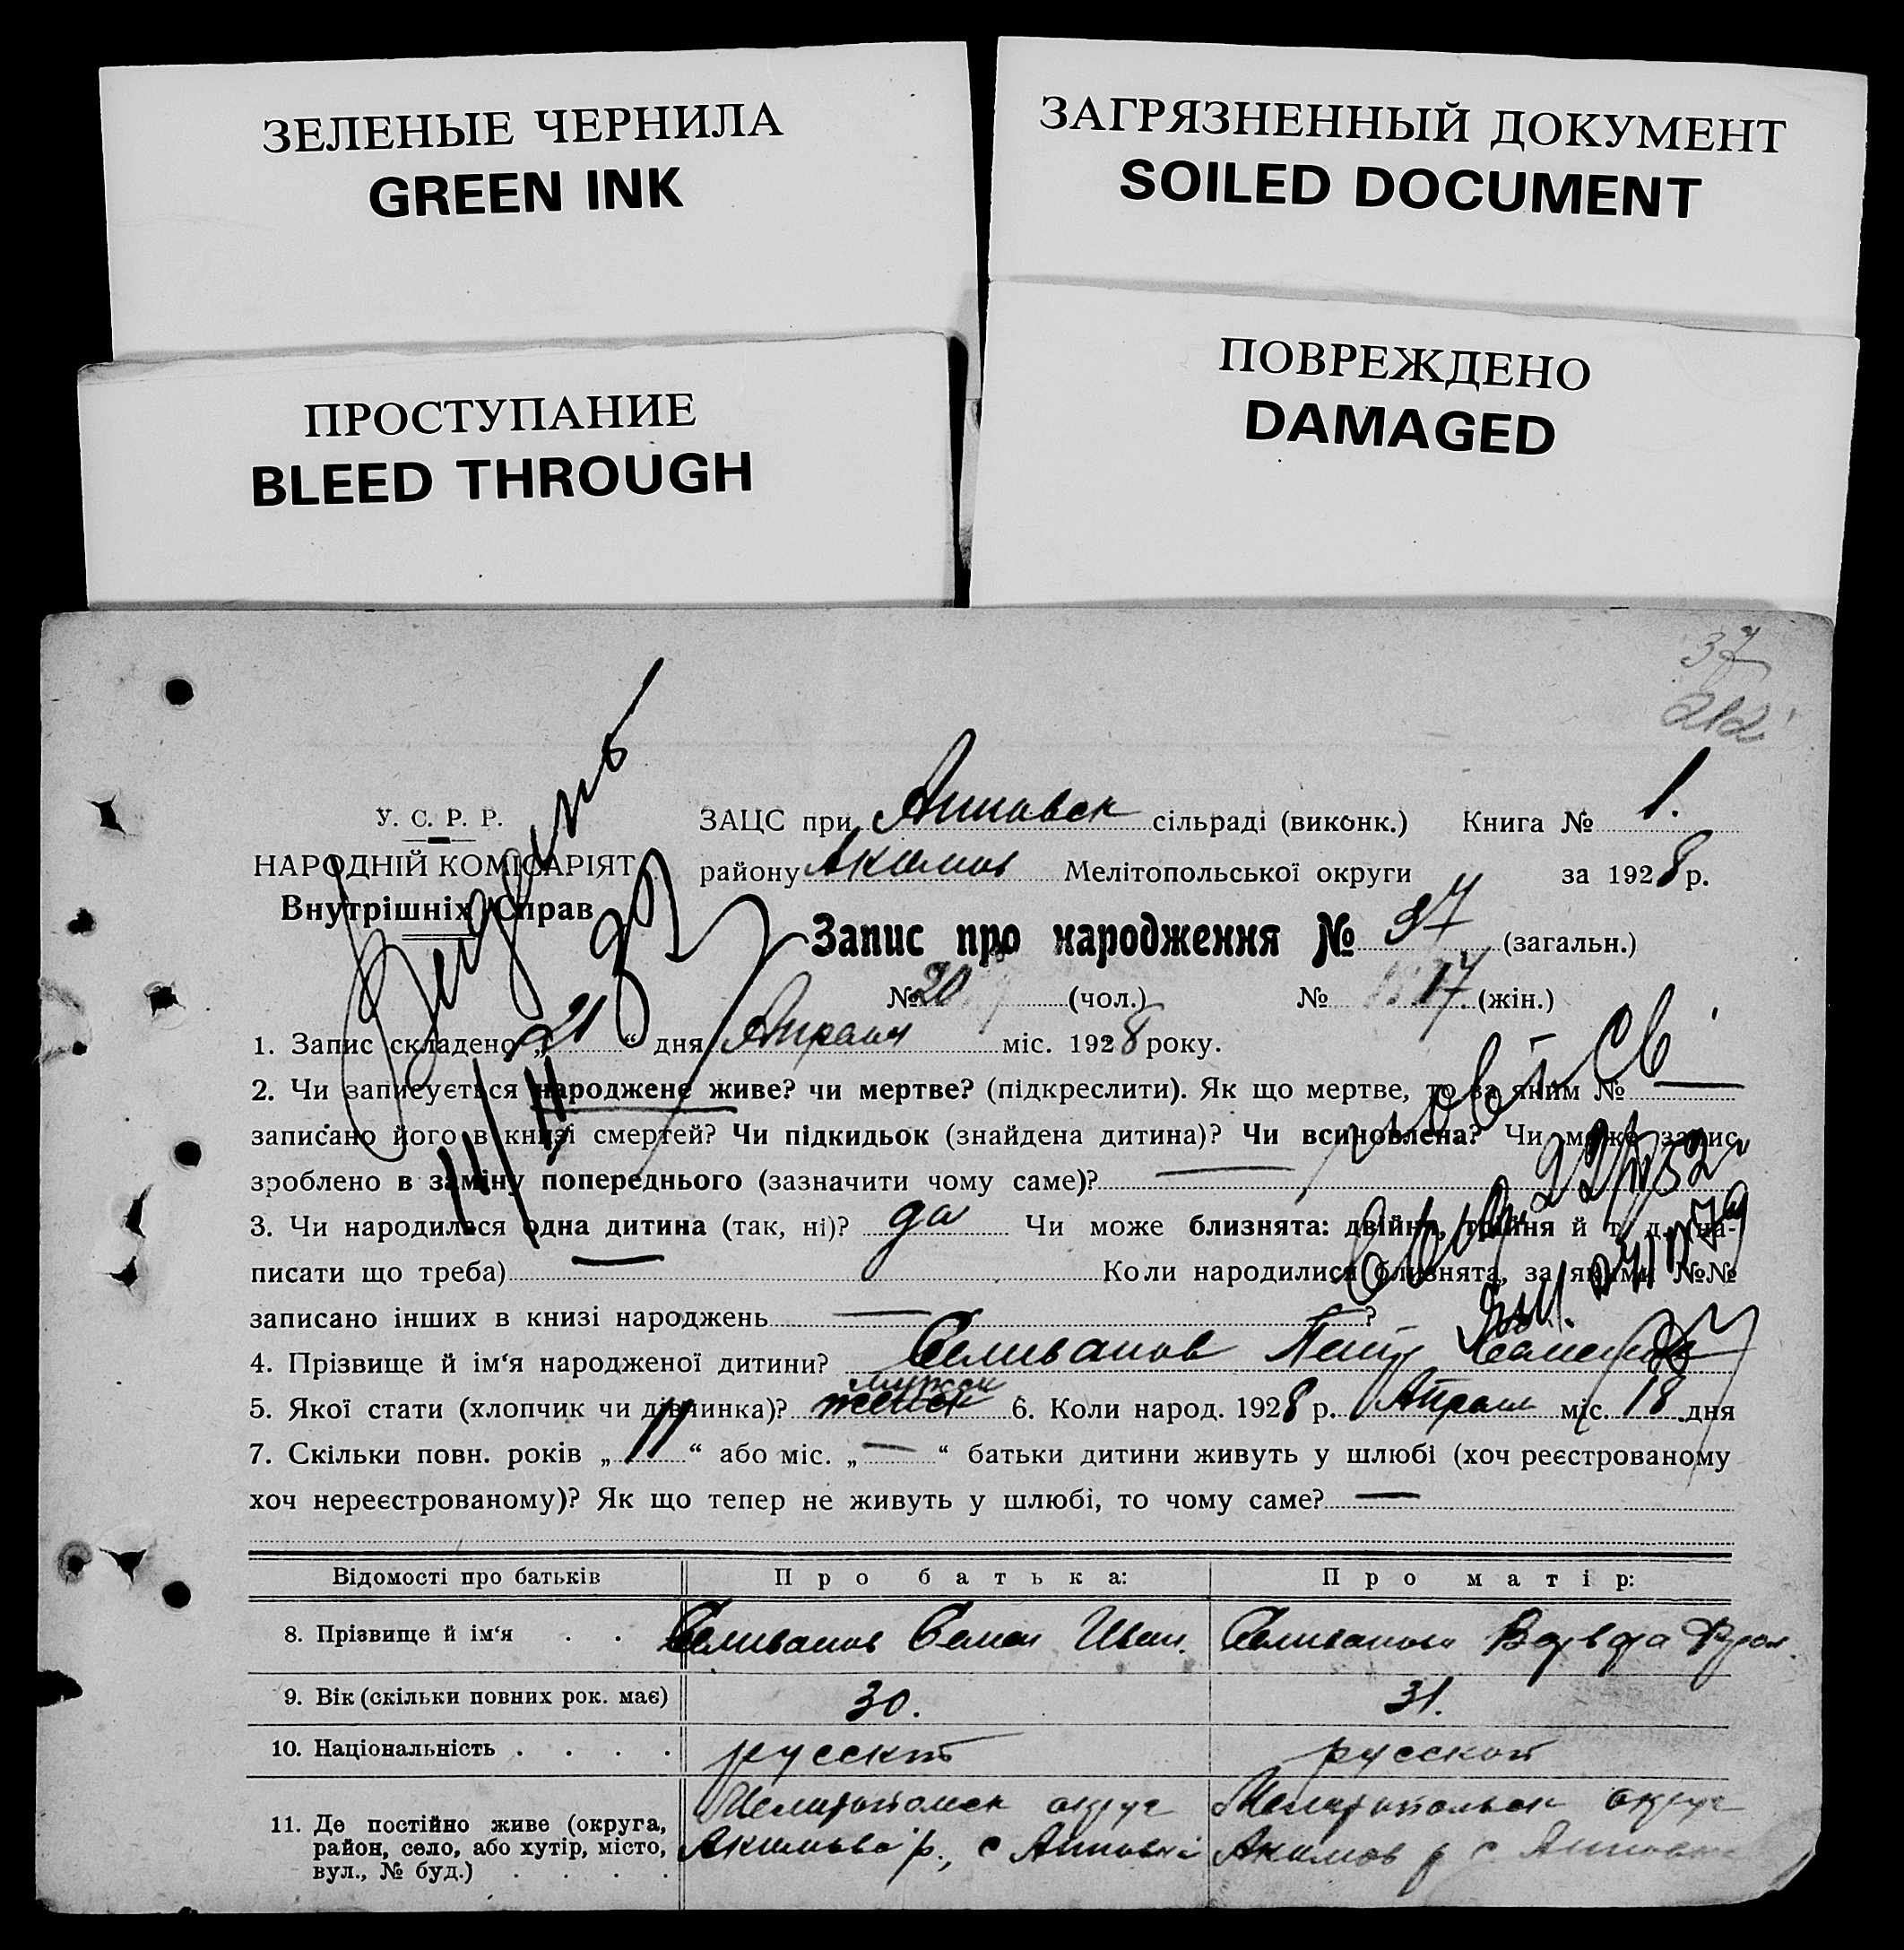 ЗЕЛЕНЫЕ ЧЕРНИЛА
GREEN INK
ЗАГРЯЗНЕННЫЙ ДОКУМЕНТ
SOILED DOCUMENT
ПРОСТУПАНИЕ
BLEED THROUGH
ПОВРЕЖДЕНО
DAMAGED
37
212
У. С. Р. Р.
НАРОДНІЙ КОМІСАРІЯТ
Внутрішніх Справ
ЗАЦС при Анновск сільраді (виконк.) Книга № 1.
району Акимов Мелітопольської округи за 1928 р.
Запис про народження № 37 (загальн.)
№ 20 (чол.) № 17 (жін.)
1. Запис складено „21“ дня Апреля міс. 1928 року.
2. Чи записується народжене живе? чи мертве? (підкреслити). Як що мертве, то за яким №
записано його в книзі смертей? Чи підкидьок (знайдена дитина)? Чи всиновлена? Чи може запис
зроблено в заміну попереднього (зазначити чому саме)? —
3. Чи народилася одна дитина (так, ні)? да Чи може близнята: двійня, трійня й т. д. (на-
писати що треба) — Коли народилися близнята, за якими №№
записано інших в книзі народжень — ?
4. Прізвище й ім‘я народженої дитини? Селиванов Петр
5. Якої стати (хлопчик чи дівчинка)? мужск 6. Коли народ. 1928 р. Апреля міс. 18 дня
7. Скільки повн. років „11“ або міс. „—“ батьки дитини живуть у шлюбі (хоч реєстрованому
хоч нереєстрованому)? Як що тепер не живуть у шлюбі, то чому саме? —
Відомості про батьків Про батька: Про матір:
8. Прізвище й ім‘я . . Селиванов Семен Иван. Селиванова Варвара Фрол.
9. Вік (скільки повних рок. має) 30. 31.
10. Національність . . . . русский русской
11. Де постійно живе (округа, район, село, або хутір, місто, вул., № буд.) . . . .
Мелитопольск округ
Акимово р., с Анновка
Мелитопольск округ
Акимов р с Анновка